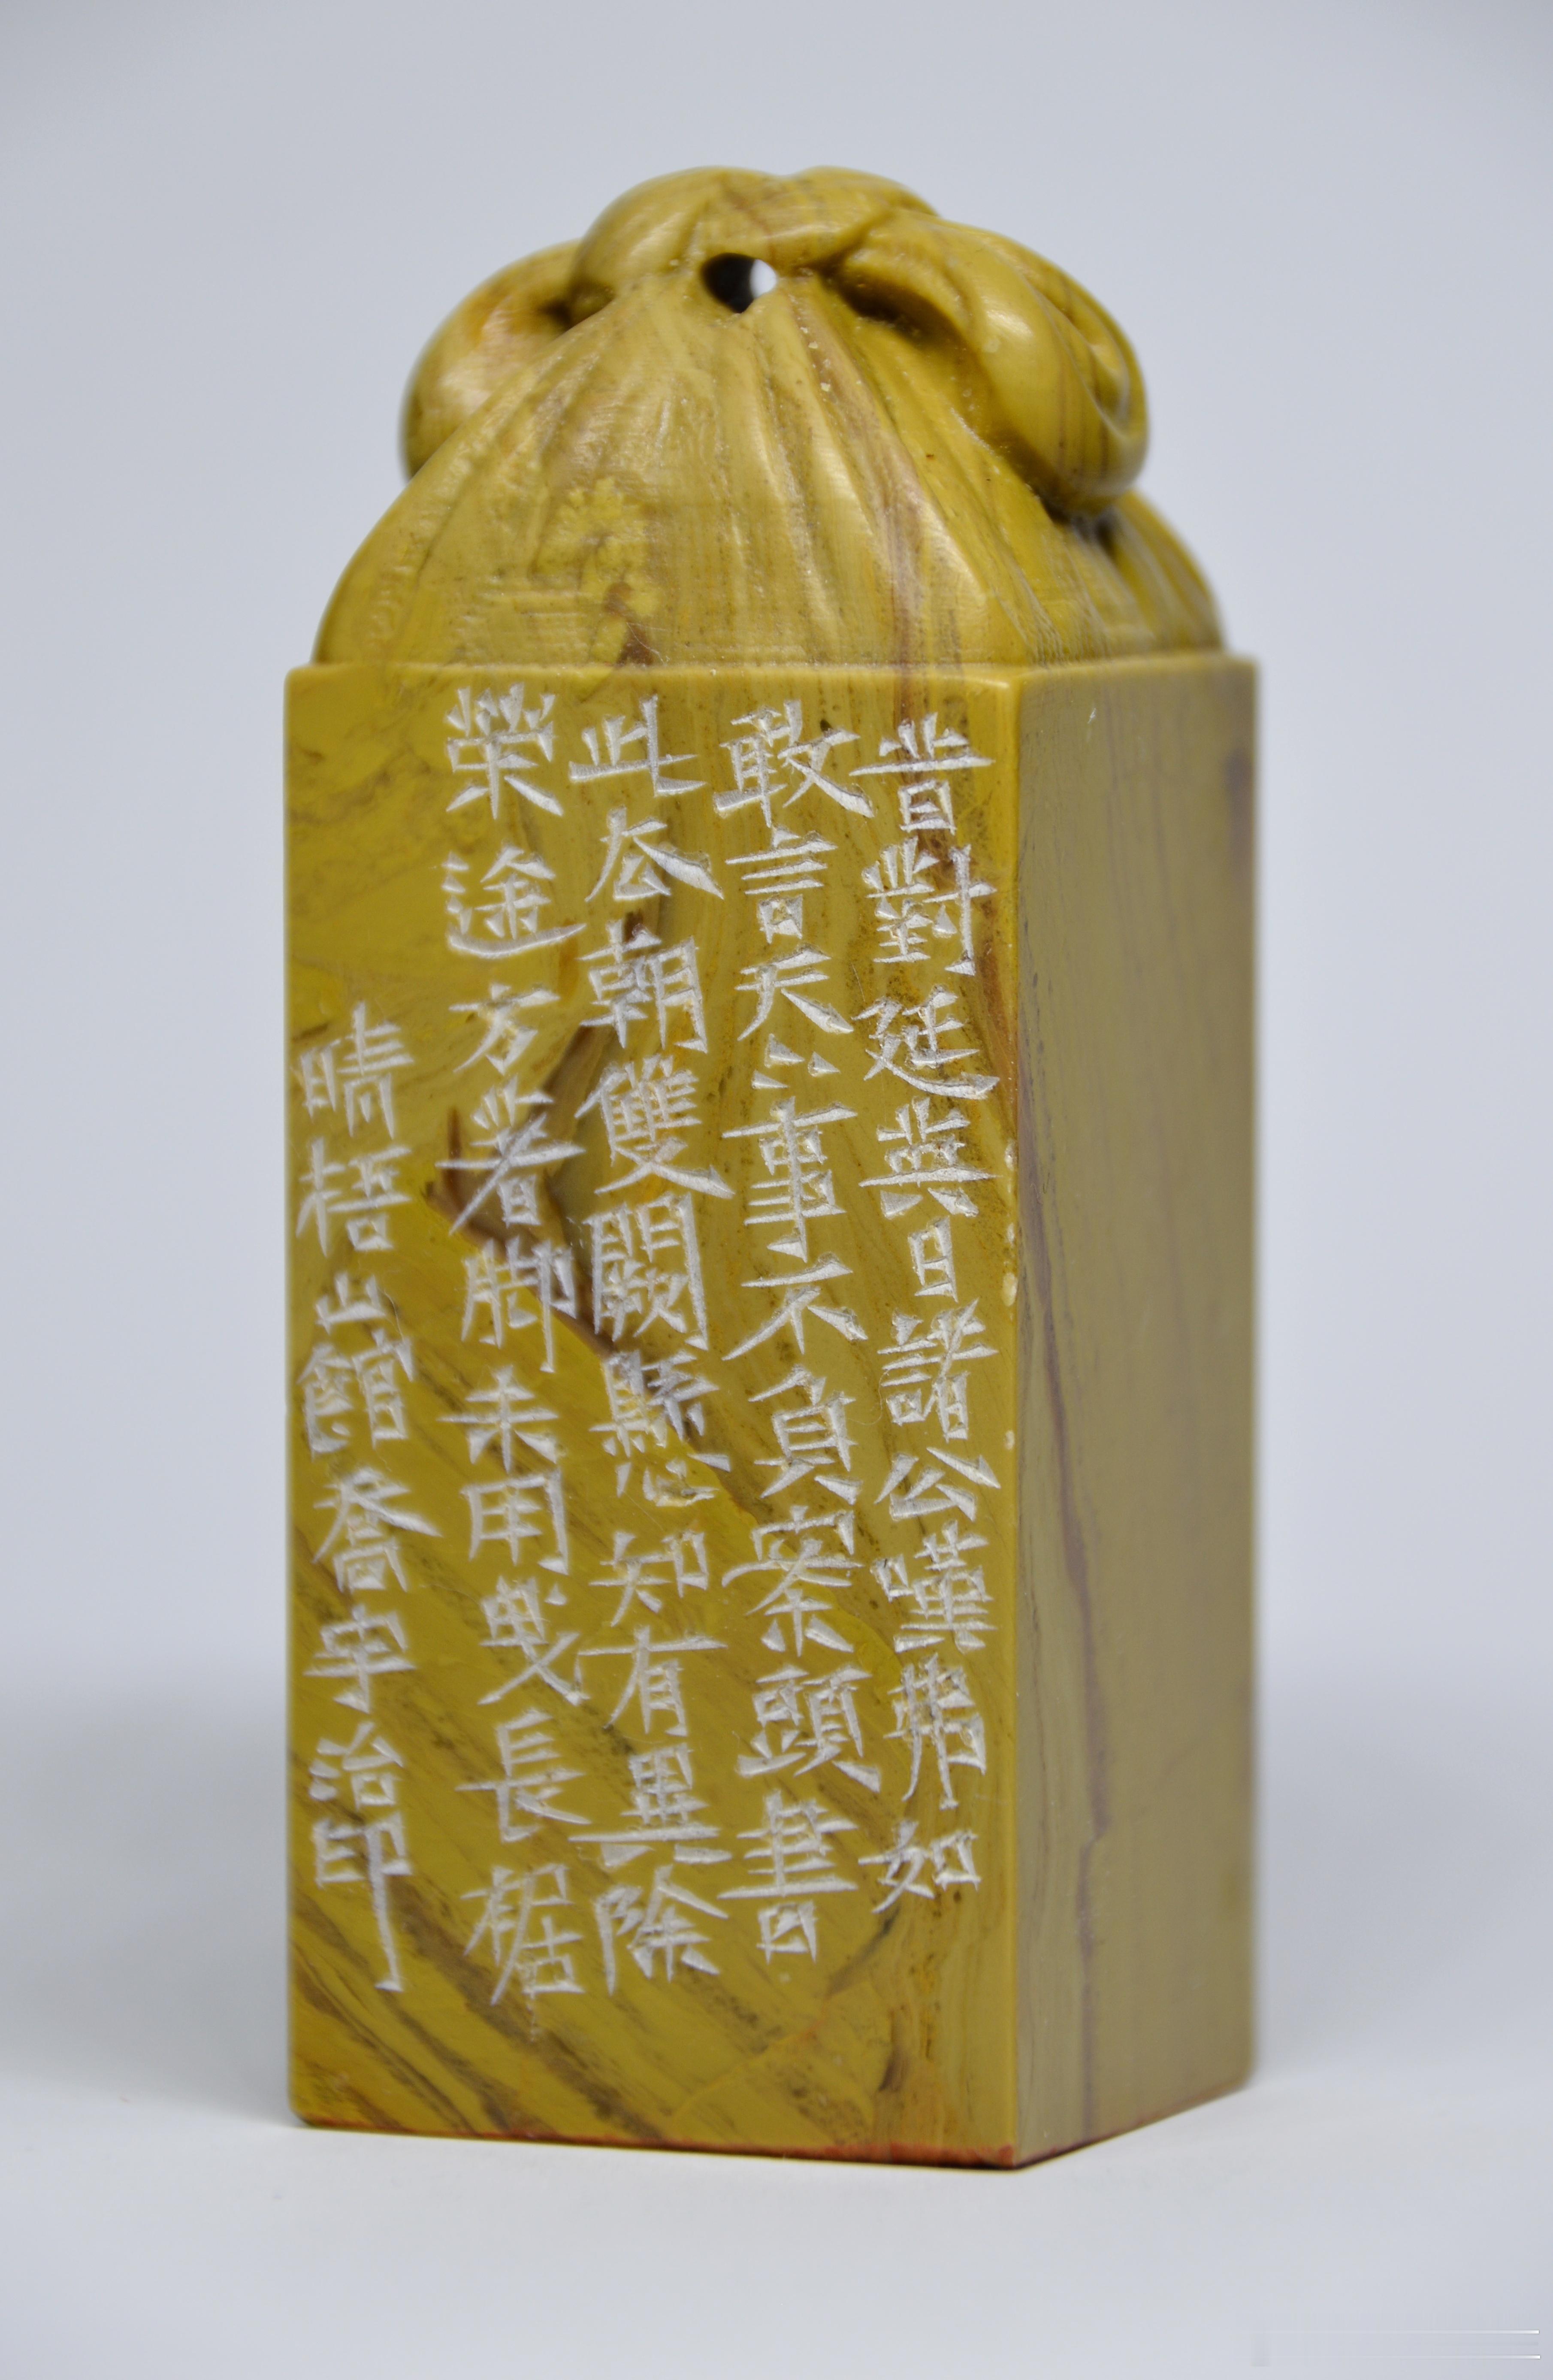 昔對延英日諸公嘆弗如
敢言天下事不負案頭書
此厺朝雙闕懸知有異除
榮途方著脚未用曳長裾
晴梧山館喬宇治印